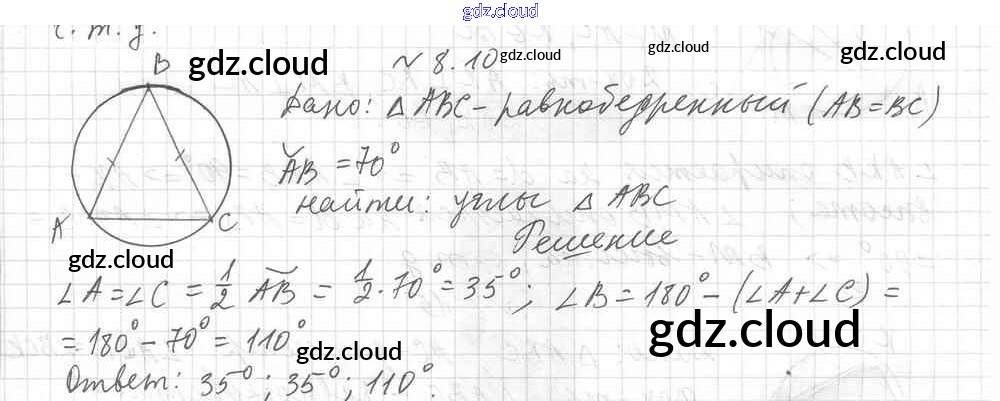 gdz.cloud
ч. т. д.
№ 8.10
gdz.cloud
gdz.cloud
gdz.cloud
gdz.cloud
B
Дано: △ ABC - равнобедренный (AB=BC)
ᵕAB = 70°
найти: углы △ ABC
A
C
Решение
gdz.cloud
∠A = ∠C = 1/2 ᵕAB = 1/2 · 70° = 35°; ∠B = 180° - (∠A+∠C) =
= 180° - 70° = 110°
gdz.cloud
gdz.cloud
Ответ: 35°; 35°; 110°.